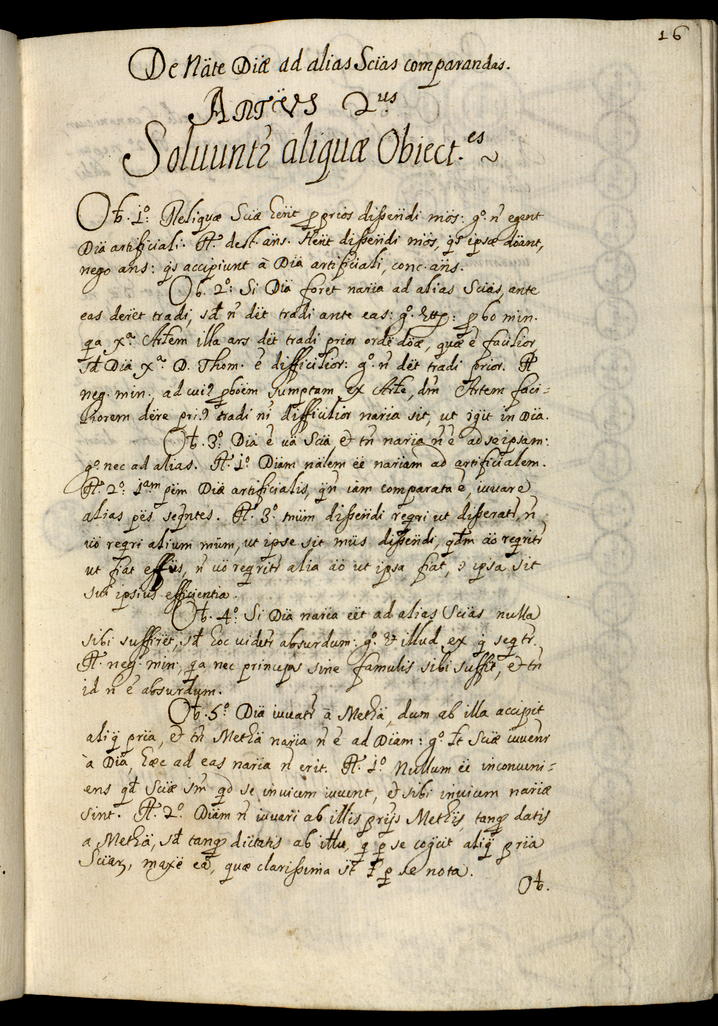 16
De Näte Diæ ad alias Scias comparandas.
Artüs 2us
Soluuntr aliquæ Obiect.es
Ob. 1º: Reliquæ Sciæ hent pprios disserdi mos: gº. n egent
Dia artificiali. R. dest. ans. Hent disserdi mos, qs ipsæ doant,
nego ans: qs accipiunt à Dia artificiali, conc. ans.
Ob. 2º: Si Dia foret naria ad alias Scias, ante
eas deret tradi, sd n det tradi ante eas: gº. &tc: pbo min.
qa xª. Artem illa ars det tradi prior orde doæ, quæ è facilior
sd Dia xª. D. Thom. è difficilior: gº. n det tradi prior. R.
neg. min., ad cuiq pboem sumptam ex Arte, dm Artem faci-
liorem dere priq tradi ni difficilior naria sit, ut igit in Dia.
Ob. 3º: Dia è ua Scia et tn naria n è ad seipsam:
gº. nec ad alias. R. 1º: Diam nalem eè nariam ad artificialem.
R. 2º: 1am pem Diæ artificialis, qn iam comparata è, iuuare
alias pes seqntes. R. 3º: mum disserdi reqri ut disserat, n
uo reqri alium mum, ut ipse sit mus disserdi, qdm ao reqritr
ut fiat effus, n uo reqritr alia ao ut ipsa fiat, ipsa sit
sui ipsius efficientia.
Ob. 4º: Si Dia naria eet ad alias Scias nulla
sibi suffiret, sd hoc uidetr absurdum: gº. et illud ex q seqtr.
R. neg. min., qa nec princeps sine famulis sibi suffit, et tn
id n è absurdum.
Ob. 5º: Dia iuuatr à Metha, dum ab illa accipit
aliq pria, et tn Metha naria n è ad Diam: gº. lt Sciæ iuuentr
à Dia, hæc ad eas naria n erit. R. 1º: Nullum eè inconueni-
ens qd Sciæ sm qd se inuicem iuuent, et sibi inuicem nariæ
sint. R. 2º: Diam n iuuari ab illis prijs Methis, tanq datis
a Metha, sd tanq dictatis ab illu, q p se cogcit aliq pria
Sciar, maxè ea, quæ clarissima st et p se nota.
Ob.